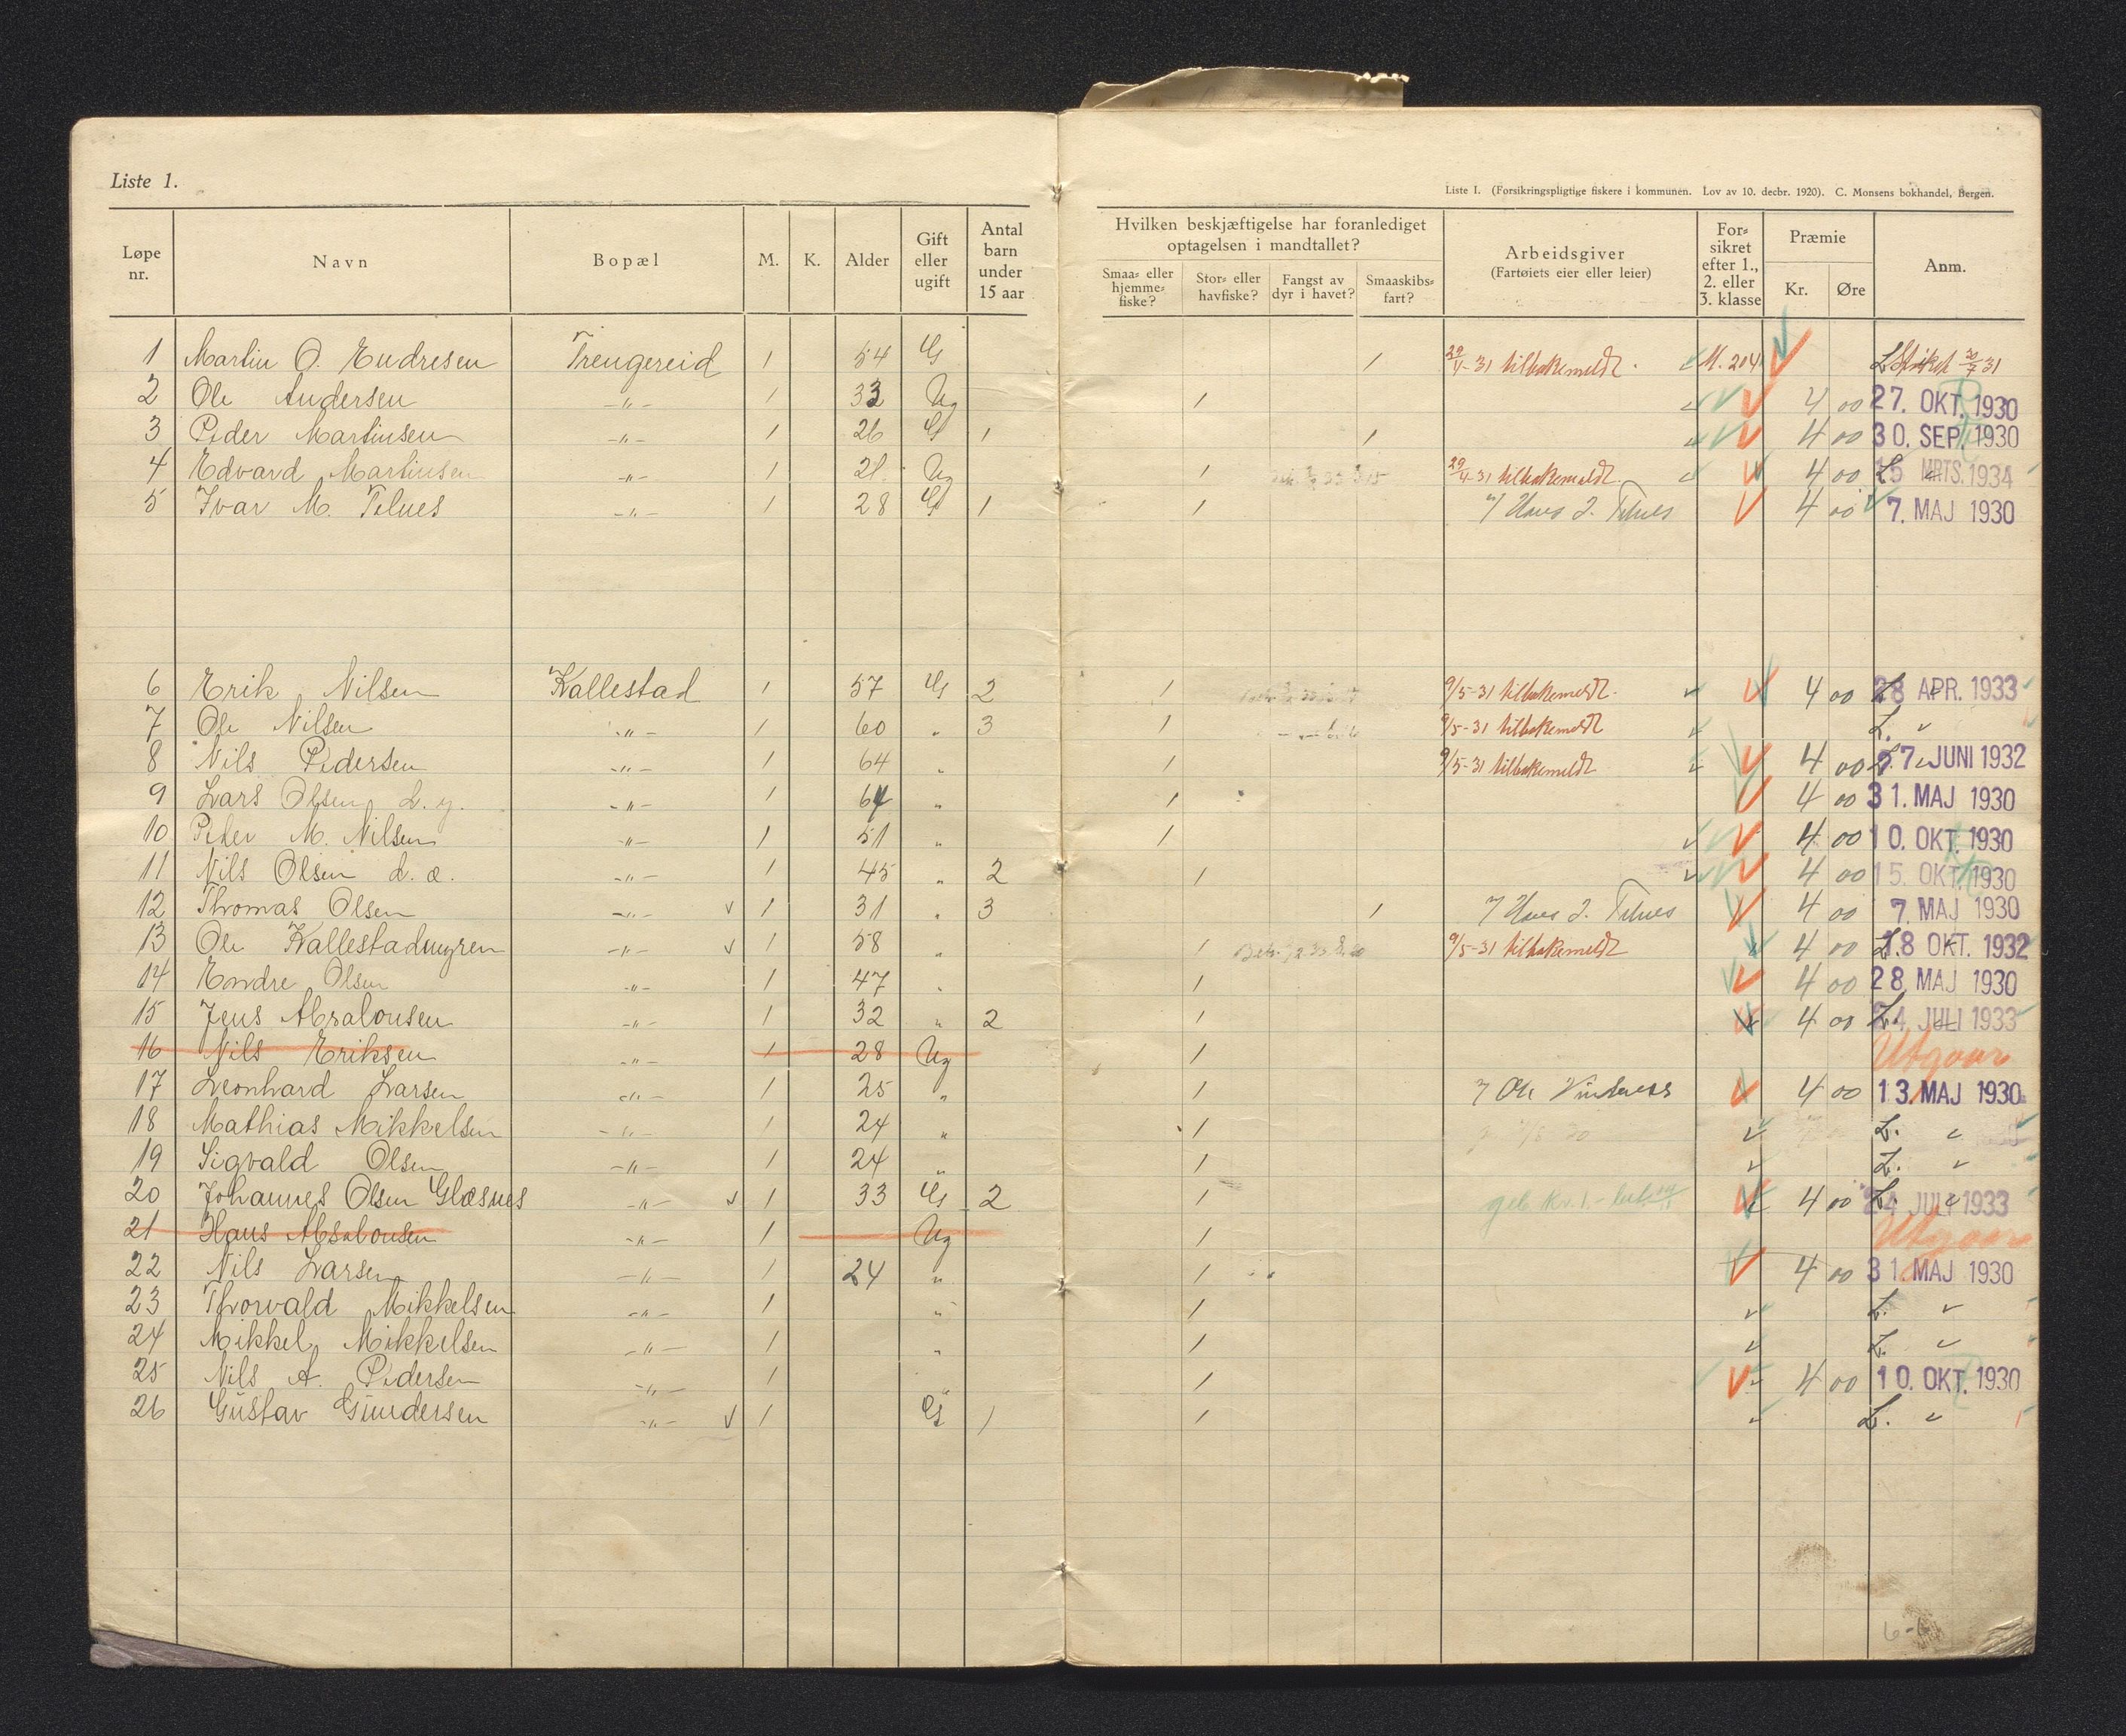 Liste 1.
Liste I. (Forsikringspligtige fiskere i kommunen. Lov av 10. decbr. 1920). C. Monsens bokhandel, Bergen.
Løpe nr. Navn Bopæl M. K. Alder Gift eller ugift Antal barn under 15 aar
Hvilken beskjæftigelse har foranlediget optagelsen i mandtallet?
Smaa- eller hjemme-fiske? Stor- eller havfiske? Fangst av dyr i havet? Smaaskibs-fart?
Arbeidsgiver (Fartøiets eier eller leier) For-sikret efter 1., 2. eller 3. klasse Præmie Kr. Øre Anm.
1 Martin O. Endresen Trengereid 1 54 G 1 29/4-31 tilbakemeldt. M. 204
2 Ole Andersen -"- 1 33 Ug 1 4 00 27. OKT. 1930
3 Peder Martinsen -"- 1 26 G 1 1 4 00 30. SEP. 1930
4 Edvard Martinsen -"- 1 21 Ug 1 29/4-31 tilbakemeldt. 4 00 L 15 MRTS. 1934
5 Ivar M. Telnes -"- 1 28 G 1 1 Hans J. Telnes 4 00 7. MAJ 1930
6 Erik Nilsen Kallestad 1 57 G 2 1 9/5-31 tilbakemeldt. 4 00 L 28 APR. 1933
7 Ole Nilsen -"- 1 60 " 3 1 9/5-31 tilbakemeldt L. "
8 Nils Pedersen -"- 1 64 " 1 9/5-31 tilbakemeldt 4 00 7 JUNI 1932
9 Lars Olsen d. y. -"- 1 64 " 1 4 00 31. MAJ 1930
10 Peder M. Nilsen -"- 1 51 " 1 4 00 10. OKT. 1930
11 Nils Olsen d. æ. -"- 1 45 " 2 1 4 00 15. OKT. 1930
12 Thomas Olsen -"- 1 31 " 3 1 Hans J. Telnes 4 00 7. MAJ 1930
13 Ole Kallestadmyren -"- 1 58 " 1 9/5-31 tilbakemeldt 4 00 18 OKT. 1932
14 Endre Olsen -"- 1 47 " 1 4 00 28. MAJ 1930
15 Jens Absalonsen -"- 1 32 " 2 1 4 00 L. 24 JULI 1933
16 Nils Eriksen -"- 1 28 Ug 1 Utgaar
17 Leonhard Larsen -"- 1 25 " 1 Ole Vindenes 4 00 13. MAJ 1930
18 Mathias Mikkelsen -"- 1 24 " 1 L. "
19 Sigvald Olsen -"- 1 24 " 1 L. "
20 Johannes Olsen Glæsnes -"- 1 33 G 2 1 4 00 L. 24 JULI 1933
21 Hans Absalonsen -"- 1 Ug 1 Utgaar
22 Nils Larsen -"- 1 24 " 1 4 00 31. MAJ 1930
23 Thorvald Mikkelsen -"- 1 " 1 L. "
24 Mikkel Mikkelsen -"- 1 " 1 L. "
25 Nils A. Pedersen -"- 1 " 1 4 00 10. OKT. 1930
26 Gustav Gundersen -"- 1 G 1 1 L. "